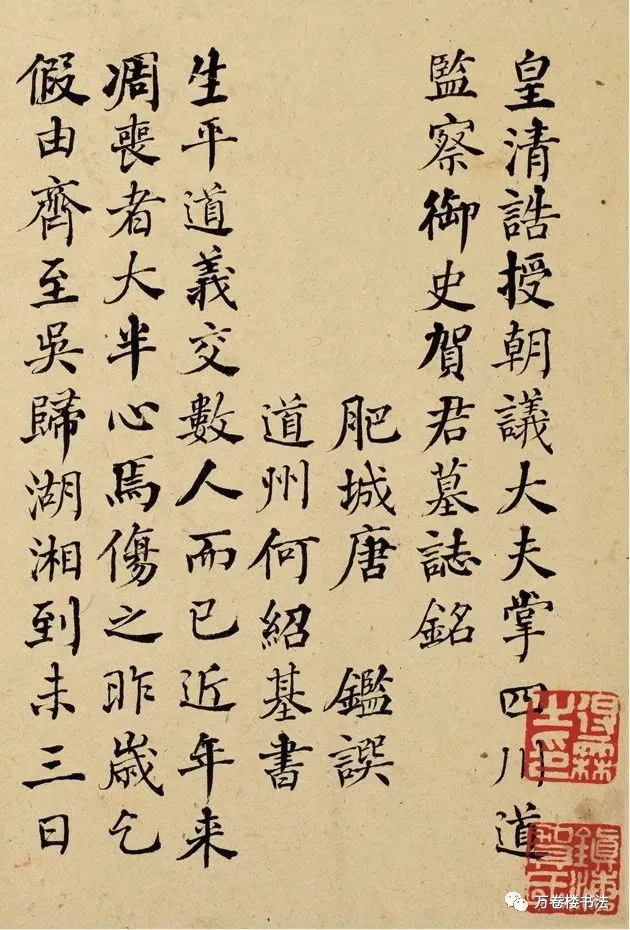 皇清誥授朝議大夫掌四川道
監察御史賀君墓誌銘
肥城唐 鑑譔
道州何紹基書
生平道義交數人而已近年来
凋喪者大半心焉傷之昨歲乞
假由齊至吳歸湖湘到未三日
万卷楼书法